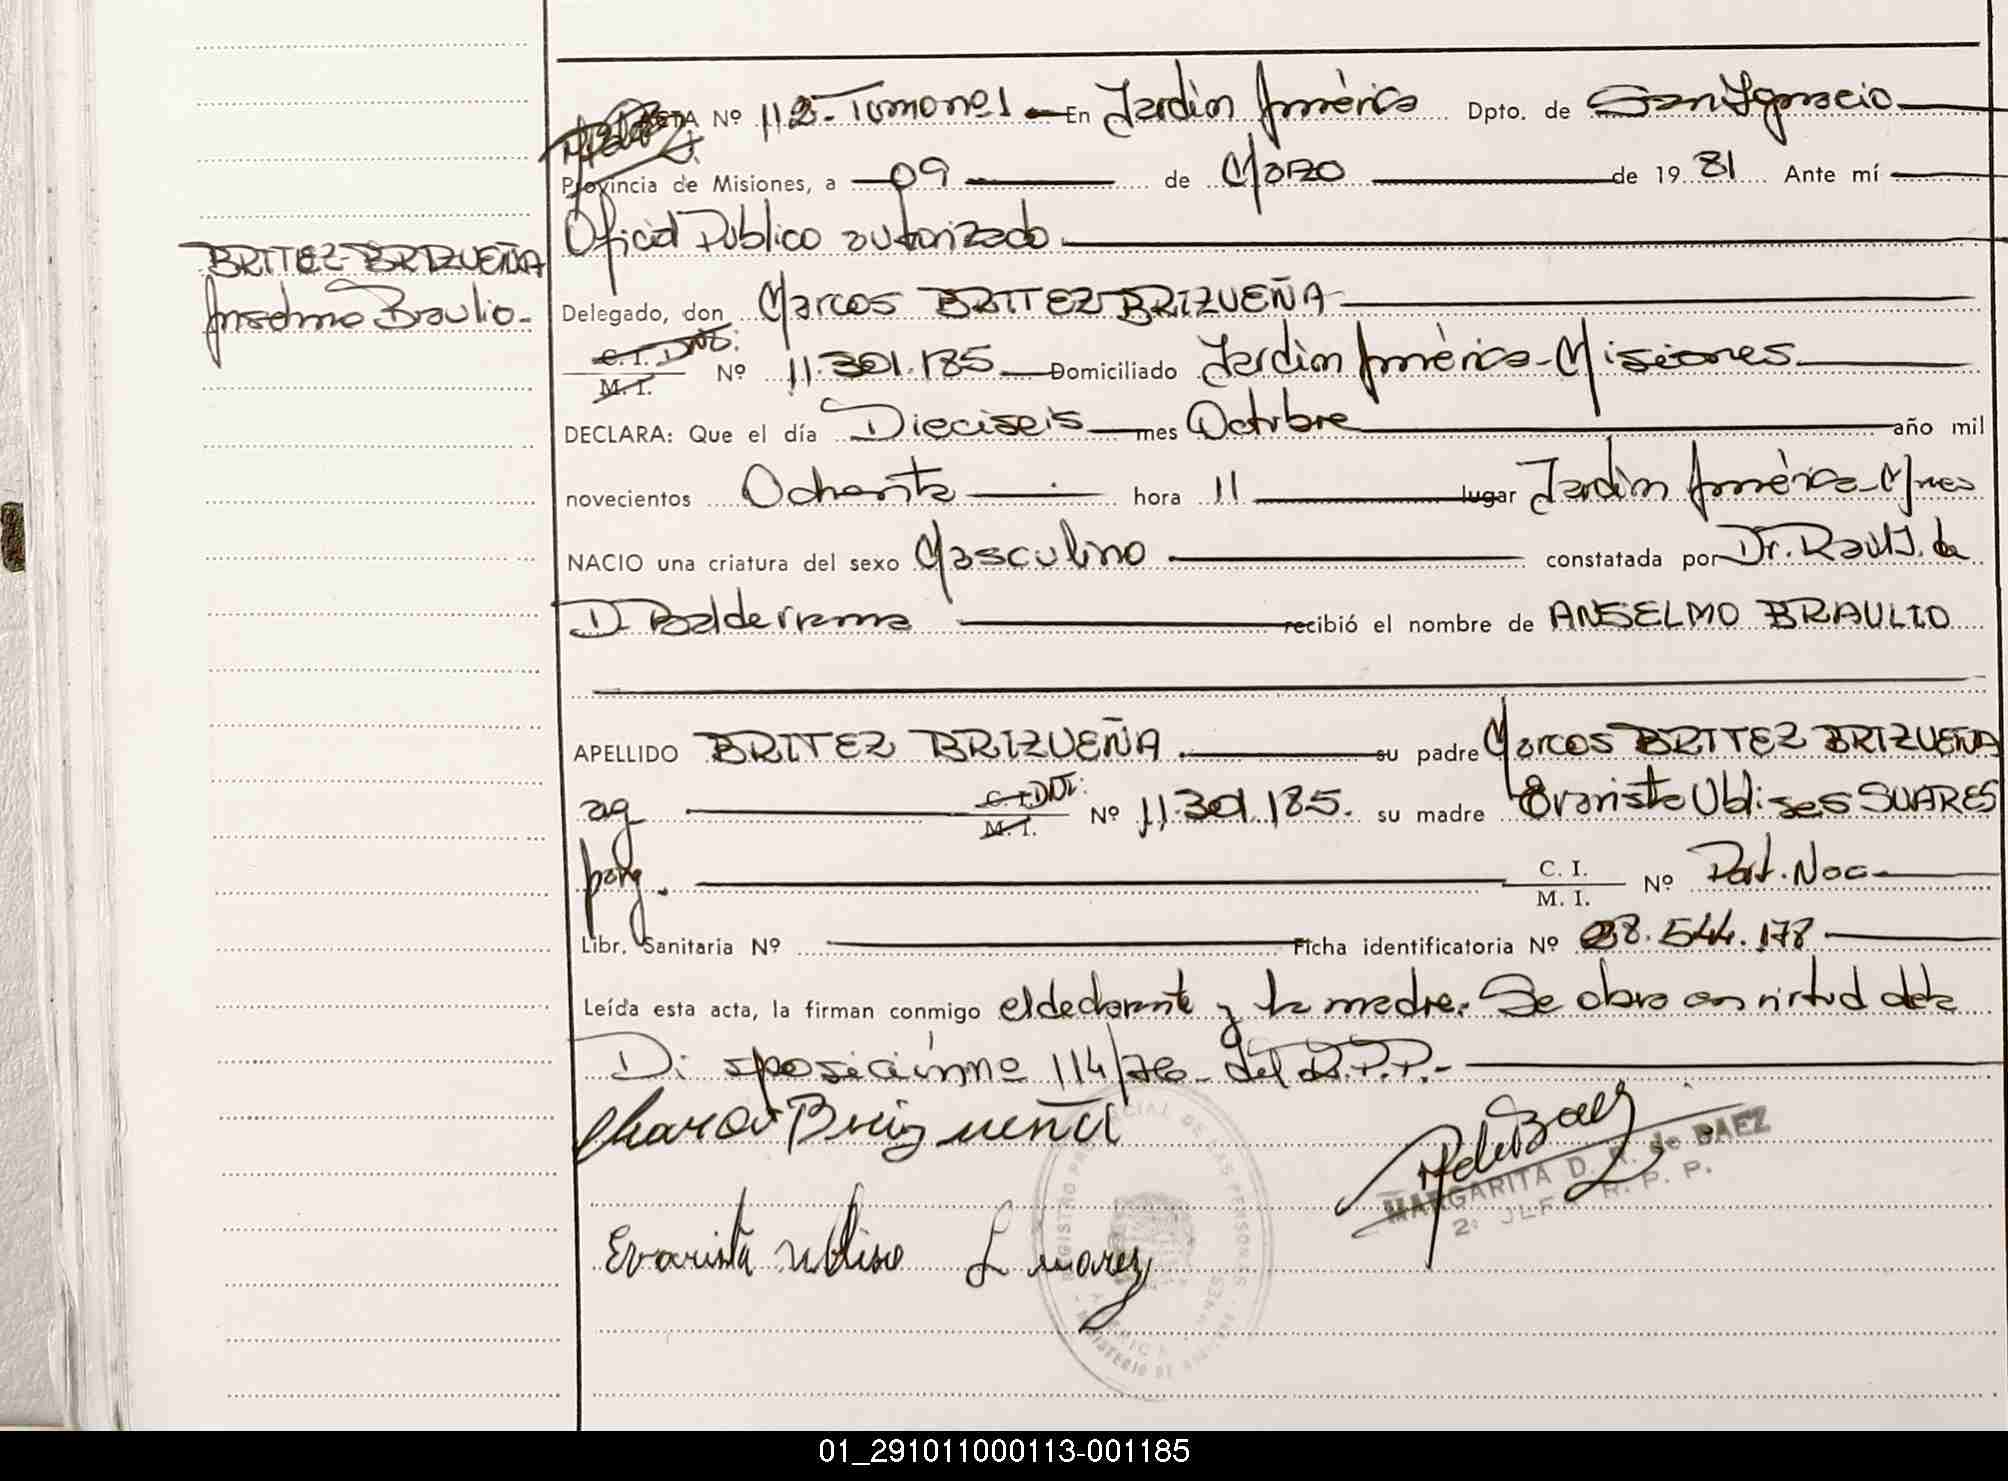 ACTA Nº 112- Tomo nº 1 En Jardín América Dpto. de San Ignacio
Provincia de Misiones, a 09 de Marzo de 19 81 Ante mí
Oficial Público autorizado
BRITEZ-BRIZUEÑA
Anselmo Braulio-
Delegado, don Marcos BRITEZ BRIZUEÑA
C. I. DNI:
M. I. Nº 11.301.185 Domiciliado Jardín América-Misiones
DECLARA: Que el día Dieciseis mes Octubre año mil
novecientos Ochenta hora 11 lugar Jardín América-Mnes
NACIO una criatura del sexo Masculino constatada por Dr. Raul J. de
D. Balderrama recibió el nombre de ANSELMO BRAULIO
APELLIDO BRITEZ BRIZUEÑA su padre Marcos BRITEZ BRIZUEÑA
ag C. I. DNI:
M. I. Nº 11.301.185. su madre Evarista Ublises SUARES
parg. C. I.
M. I. Nº Part. Nac
Libr. Sanitaria Nº Ficha identificatoria Nº 28.544.178
Leída esta acta, la firman conmigo el declarante y la madre. Se obra en virtud de la
Disposición nº 114/76- del R.P.P.-
Marcos Brizueña
MARGARITA D. R. de BAEZ
2º JEFE R. P. P.
Evarista Ublise Suarez
REGISTRO PROVINCIAL DE LAS PERSONAS
01_291011000113-001185